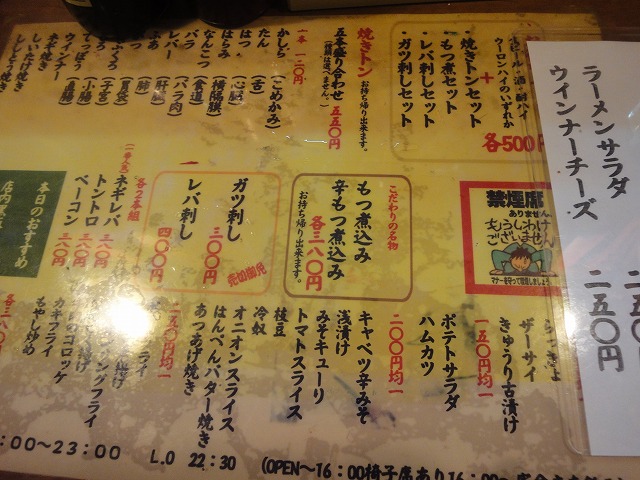 ラーメンサラダ 二五〇
ウインナーチーズ 二五〇円
酒・酎ハイ
ウーロンハイのいずれか
＋
焼きトンセット
もつ煮セット
レバ刺しセット
ガツ刺しセット
各500円
焼きトン
お持ち帰り出来ます。
五本盛り合わせ 五五〇円
(種類は選べません。)
一本 一二〇円
かしら(こめかみ)
たん(舌)
はつ(心臓)
はらみ(横隔膜)
なんこつ(食道)
バラ(バラ肉)
レバー(肝臓)
ふあ(肺)
(胃袋)
(子宮)
(小腸)
てっぽう(直腸)
ウインナー
ネギ焼き
しいたけ焼き
ししとう焼き
禁煙席
ありません。
もうしわけ
ございません
マナーを守って喫煙しましょう。
こだわりの名物
もつ煮込み
辛もつ煮込み
各三八〇円
お持ち帰り出来ます。
ガツ刺し 三〇〇円
レバ刺し 四〇〇円
売切御免
各2本組
ネギレバ 三一〇円
トントロ 三八〇円
ベーコン 三八〇円
本日のおすすめ
店内黒
ザーサイ
きゅうり古漬け
一五〇円均一
ポテトサラダ
ハムカツ
二〇〇円均一
キャベツ辛みそ
浅漬け
みそキューリ
トマトスライス
枝豆
冷奴
オニオンスライス
はんぺんバター焼き
あつあげ焼き
二九〇円均一
フライ
コロッケ
カキフライ
もやし炒め
各三八〇
:00〜23:00 L.O 22:30
(OPEN〜16:00椅子席あり16:00〜